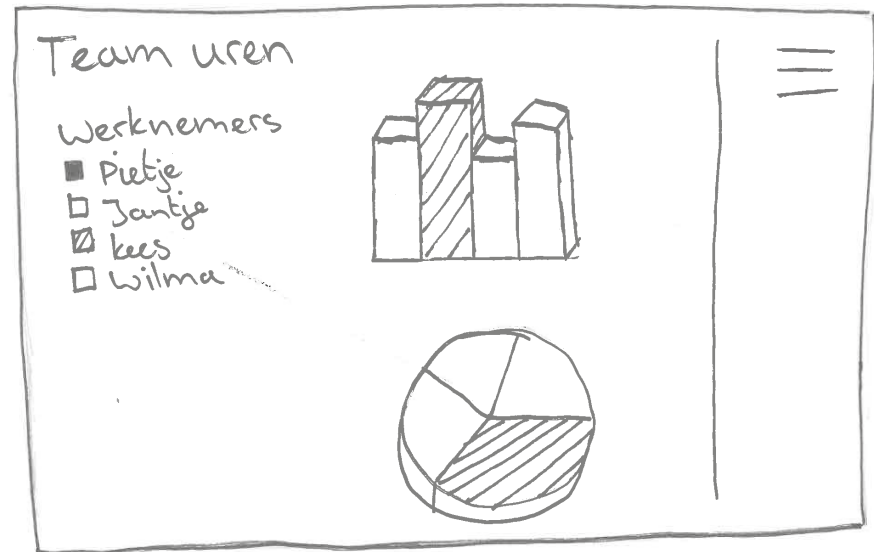 Team uren
Werknemers
Pietje
Jantje
kees
Wilma